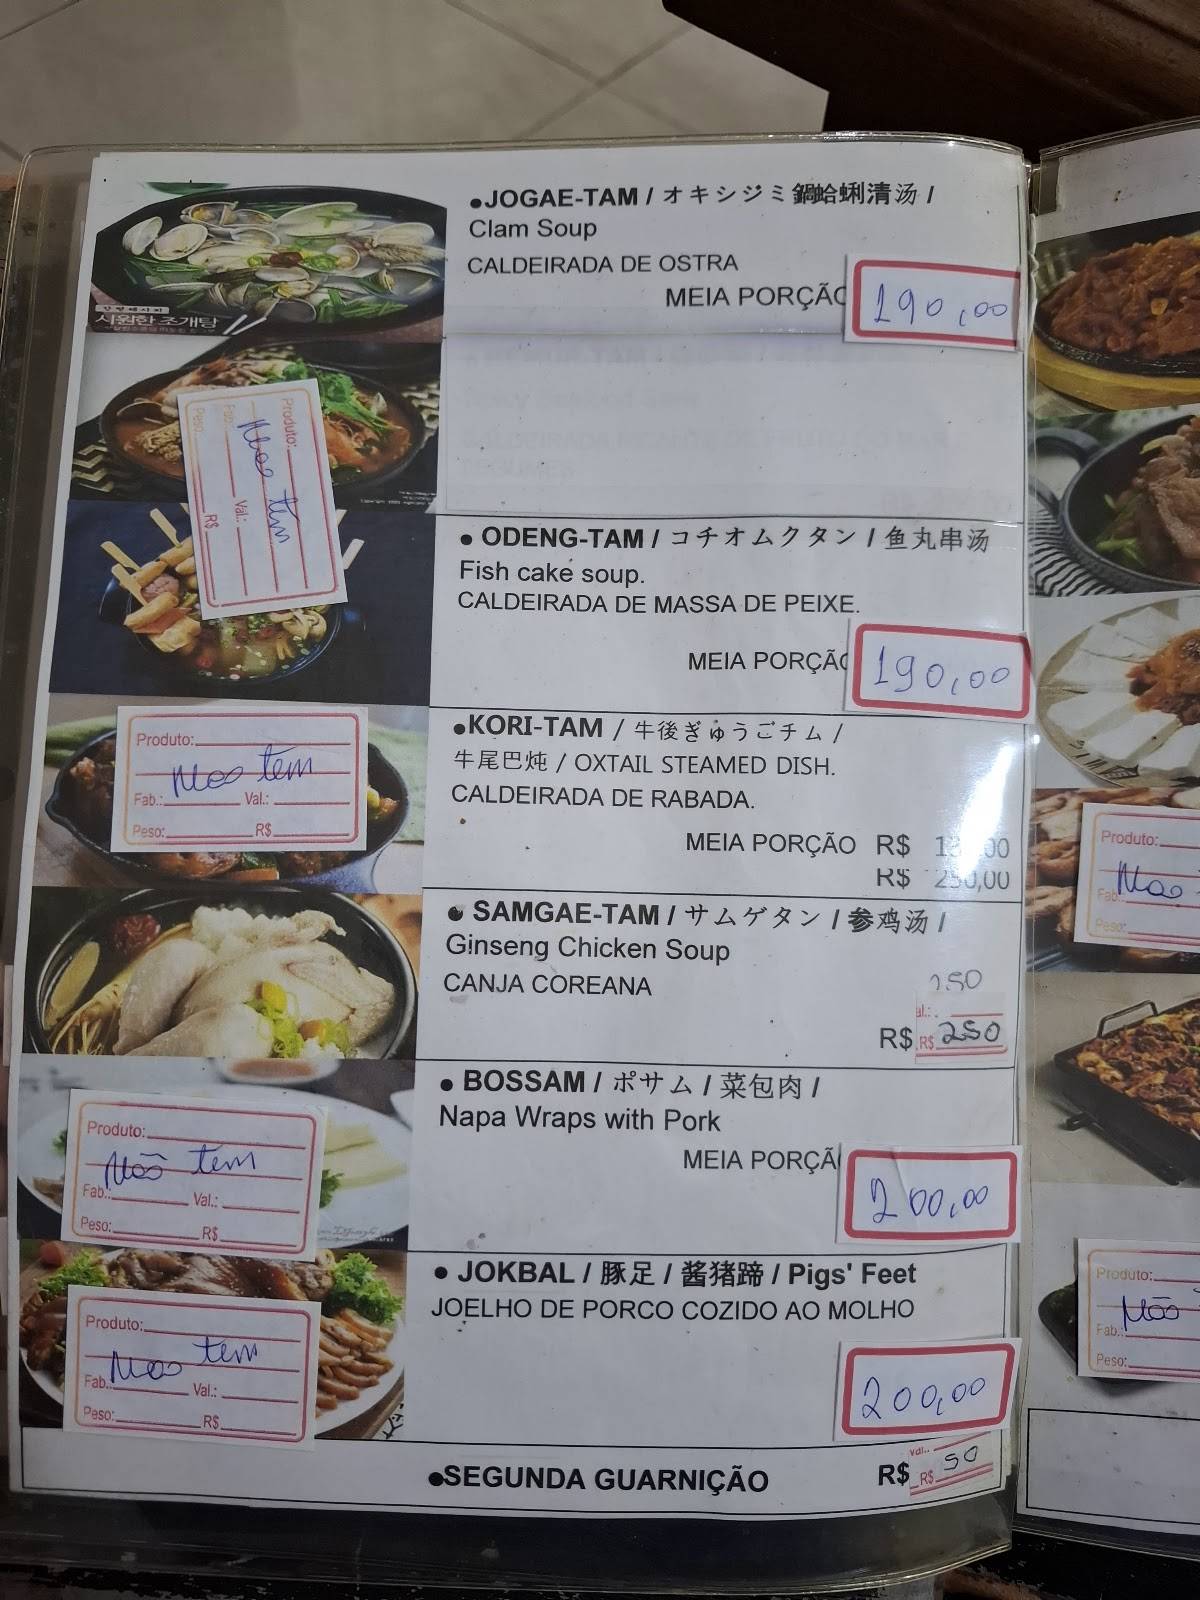 ●JOGAE-TAM / オキシジミ鍋蛤蜊清汤 /
Clam Soup
CALDEIRADA DE OSTRA
MEIA PORÇÃO
190,00
시원한 조개탕
Produto:
Não tem
Fab.: Val.:
Peso: R$
● ODENG-TAM / コチオムクタン / 鱼丸串汤
Fish cake soup.
CALDEIRADA DE MASSA DE PEIXE.
MEIA PORÇÃO
190,00
●KORI-TAM / 牛後ぎゅうごチム /
牛尾巴炖 / OXTAIL STEAMED DISH.
CALDEIRADA DE RABADA.
MEIA PORÇÃO R$
R$ 250,00
Produto:
Não tem
Fab.: Val.:
Peso: R$
● SAMGAE-TAM / サムゲタン / 参鸡汤 /
Ginseng Chicken Soup
CANJA COREANA
150
al.:
R$ R$ 250
● BOSSAM / ポサム / 菜包肉 /
Napa Wraps with Pork
MEIA PORÇÃ
200,00
Produto:
Não tem
Fab.: Val.:
Peso: R$
● JOKBAL / 豚足 / 酱猪蹄 / Pigs' Feet
JOELHO DE PORCO COZIDO AO MOLHO
200,00
Produto:
Não tem
Fab. Val.:
Peso: R$
●SEGUNDA GUARNIÇÃO R$ R$ 50
Produto:
Não
Fab.
Peso:
Produto:
Não
Fab.:
Peso: